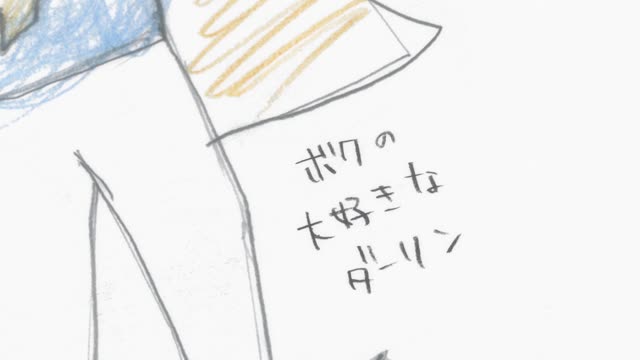 ボクの
大好きな
ダーリン